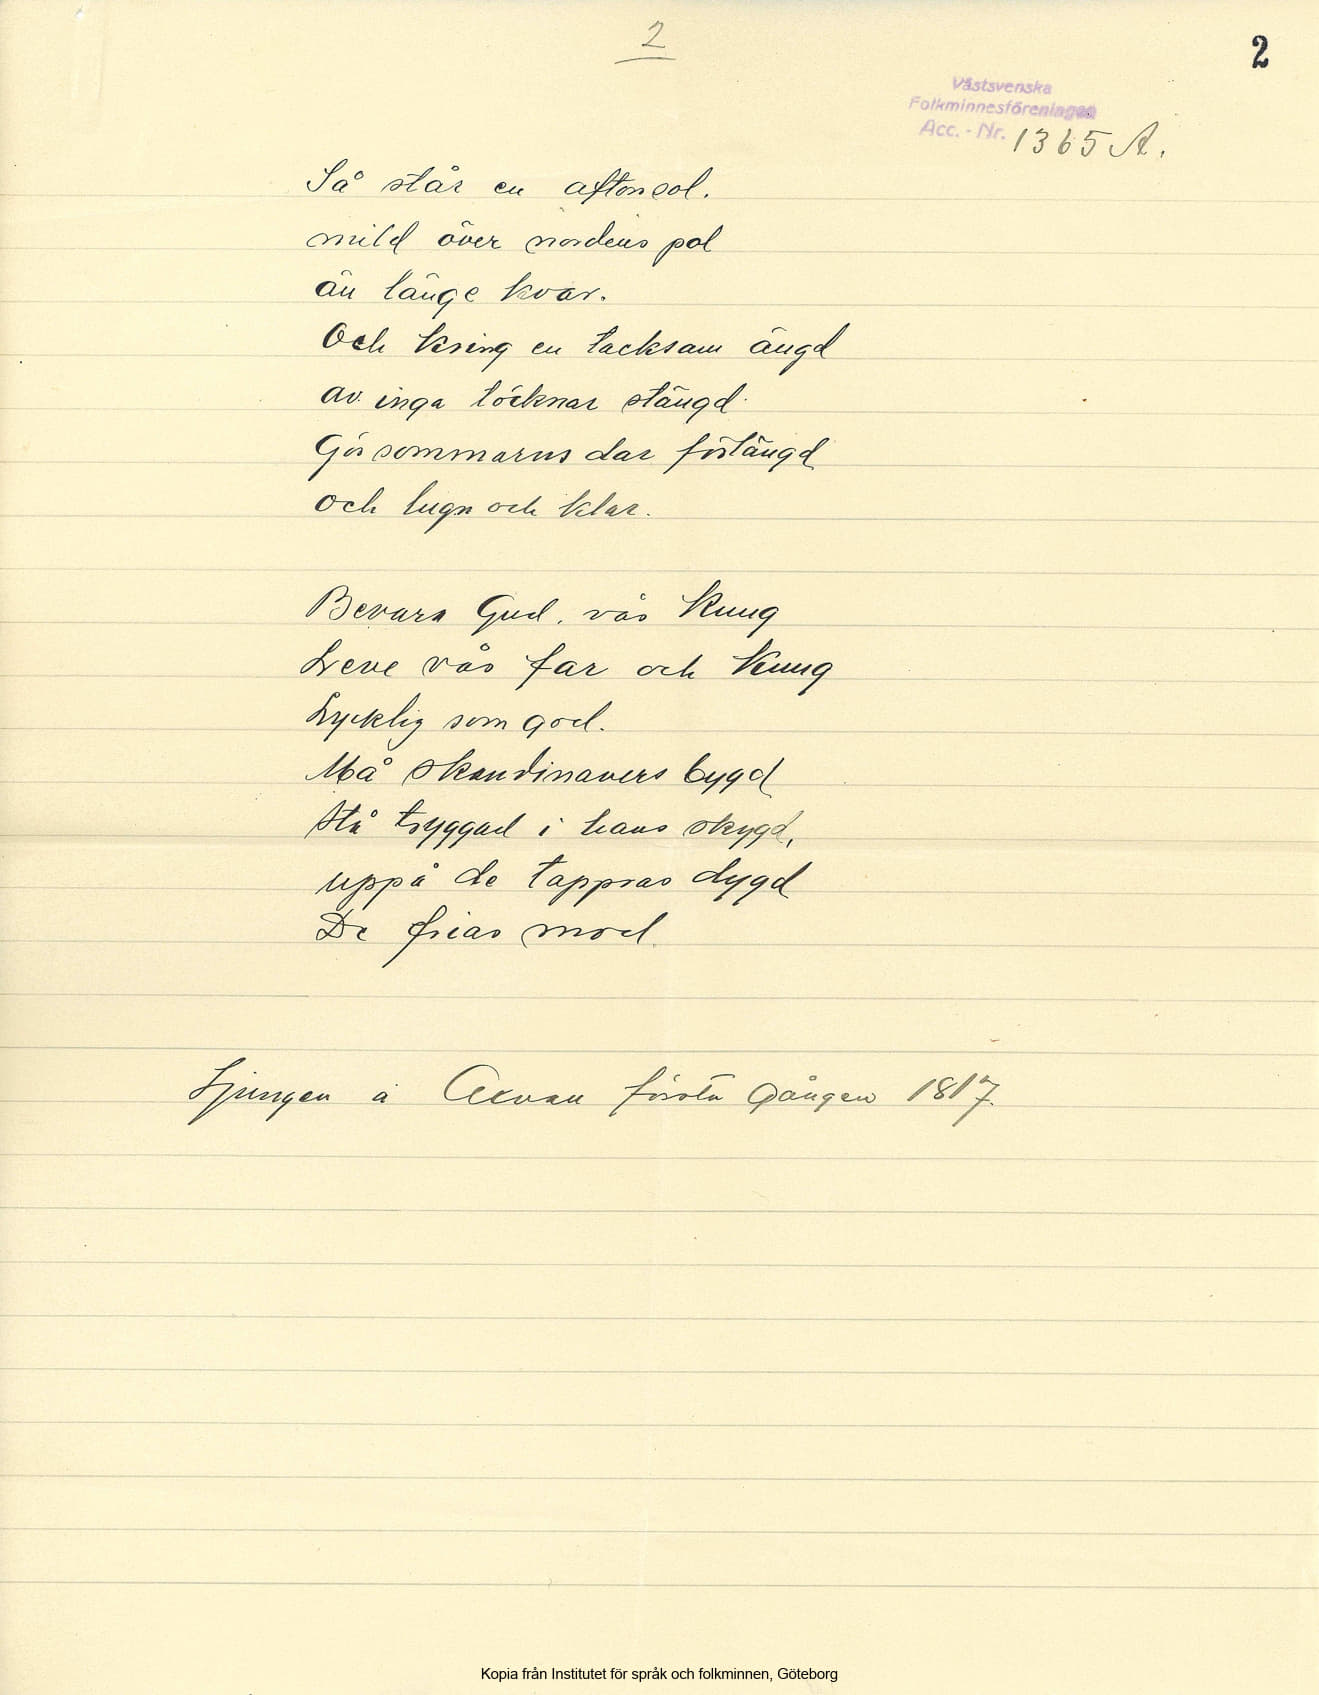 2
2
Västsvenska
Folkminnesföreningen
Acc. - Nr. 1365 A.
Så står en aftonsol.
mild över nordens pol
än länge kvar.
Och kring en tacksam ängd
av inga töcknar stängd.
Gör sommarns dar förlängd
och lugn och klar.
Bevara Gud, vår Kung
Leve vår far och Kung
Lycklig som god.
Må skandinavers bygd
Stå tryggad i hans skygd,
uppå de tappras dygd
De frias mod.
Sjungen å första gången 1817.
Kopia från Institutet för språk och folkminnen, Göteborg